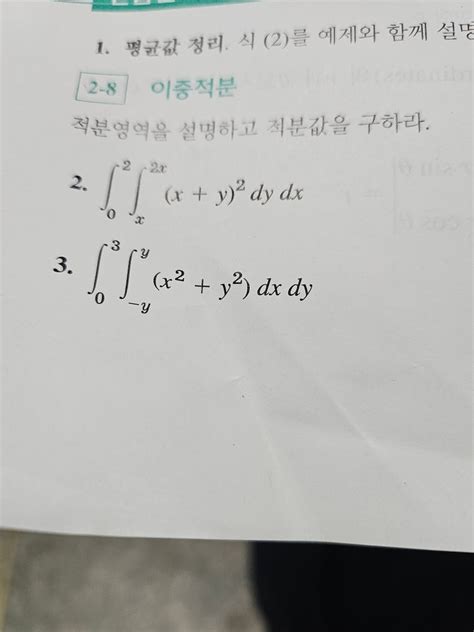 1. 평균값 정리. 식 (2)를 예제와 함께 설명
2-8 이중적분
적분영역을 설명하고 적분값을 구하라.
2. ∫₀² ∫ₓ²ˣ (x + y)² dy dx
3. ∫₀³ ∫₋ᵧʸ (x² + y²) dx dy